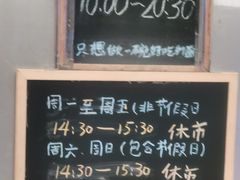 10:00~20:30
只想做一碗好吃的面
周一至周五(非节假日
14:30—15:30 休市
周六、周日(包含节假日)
14:30—15:30 休市